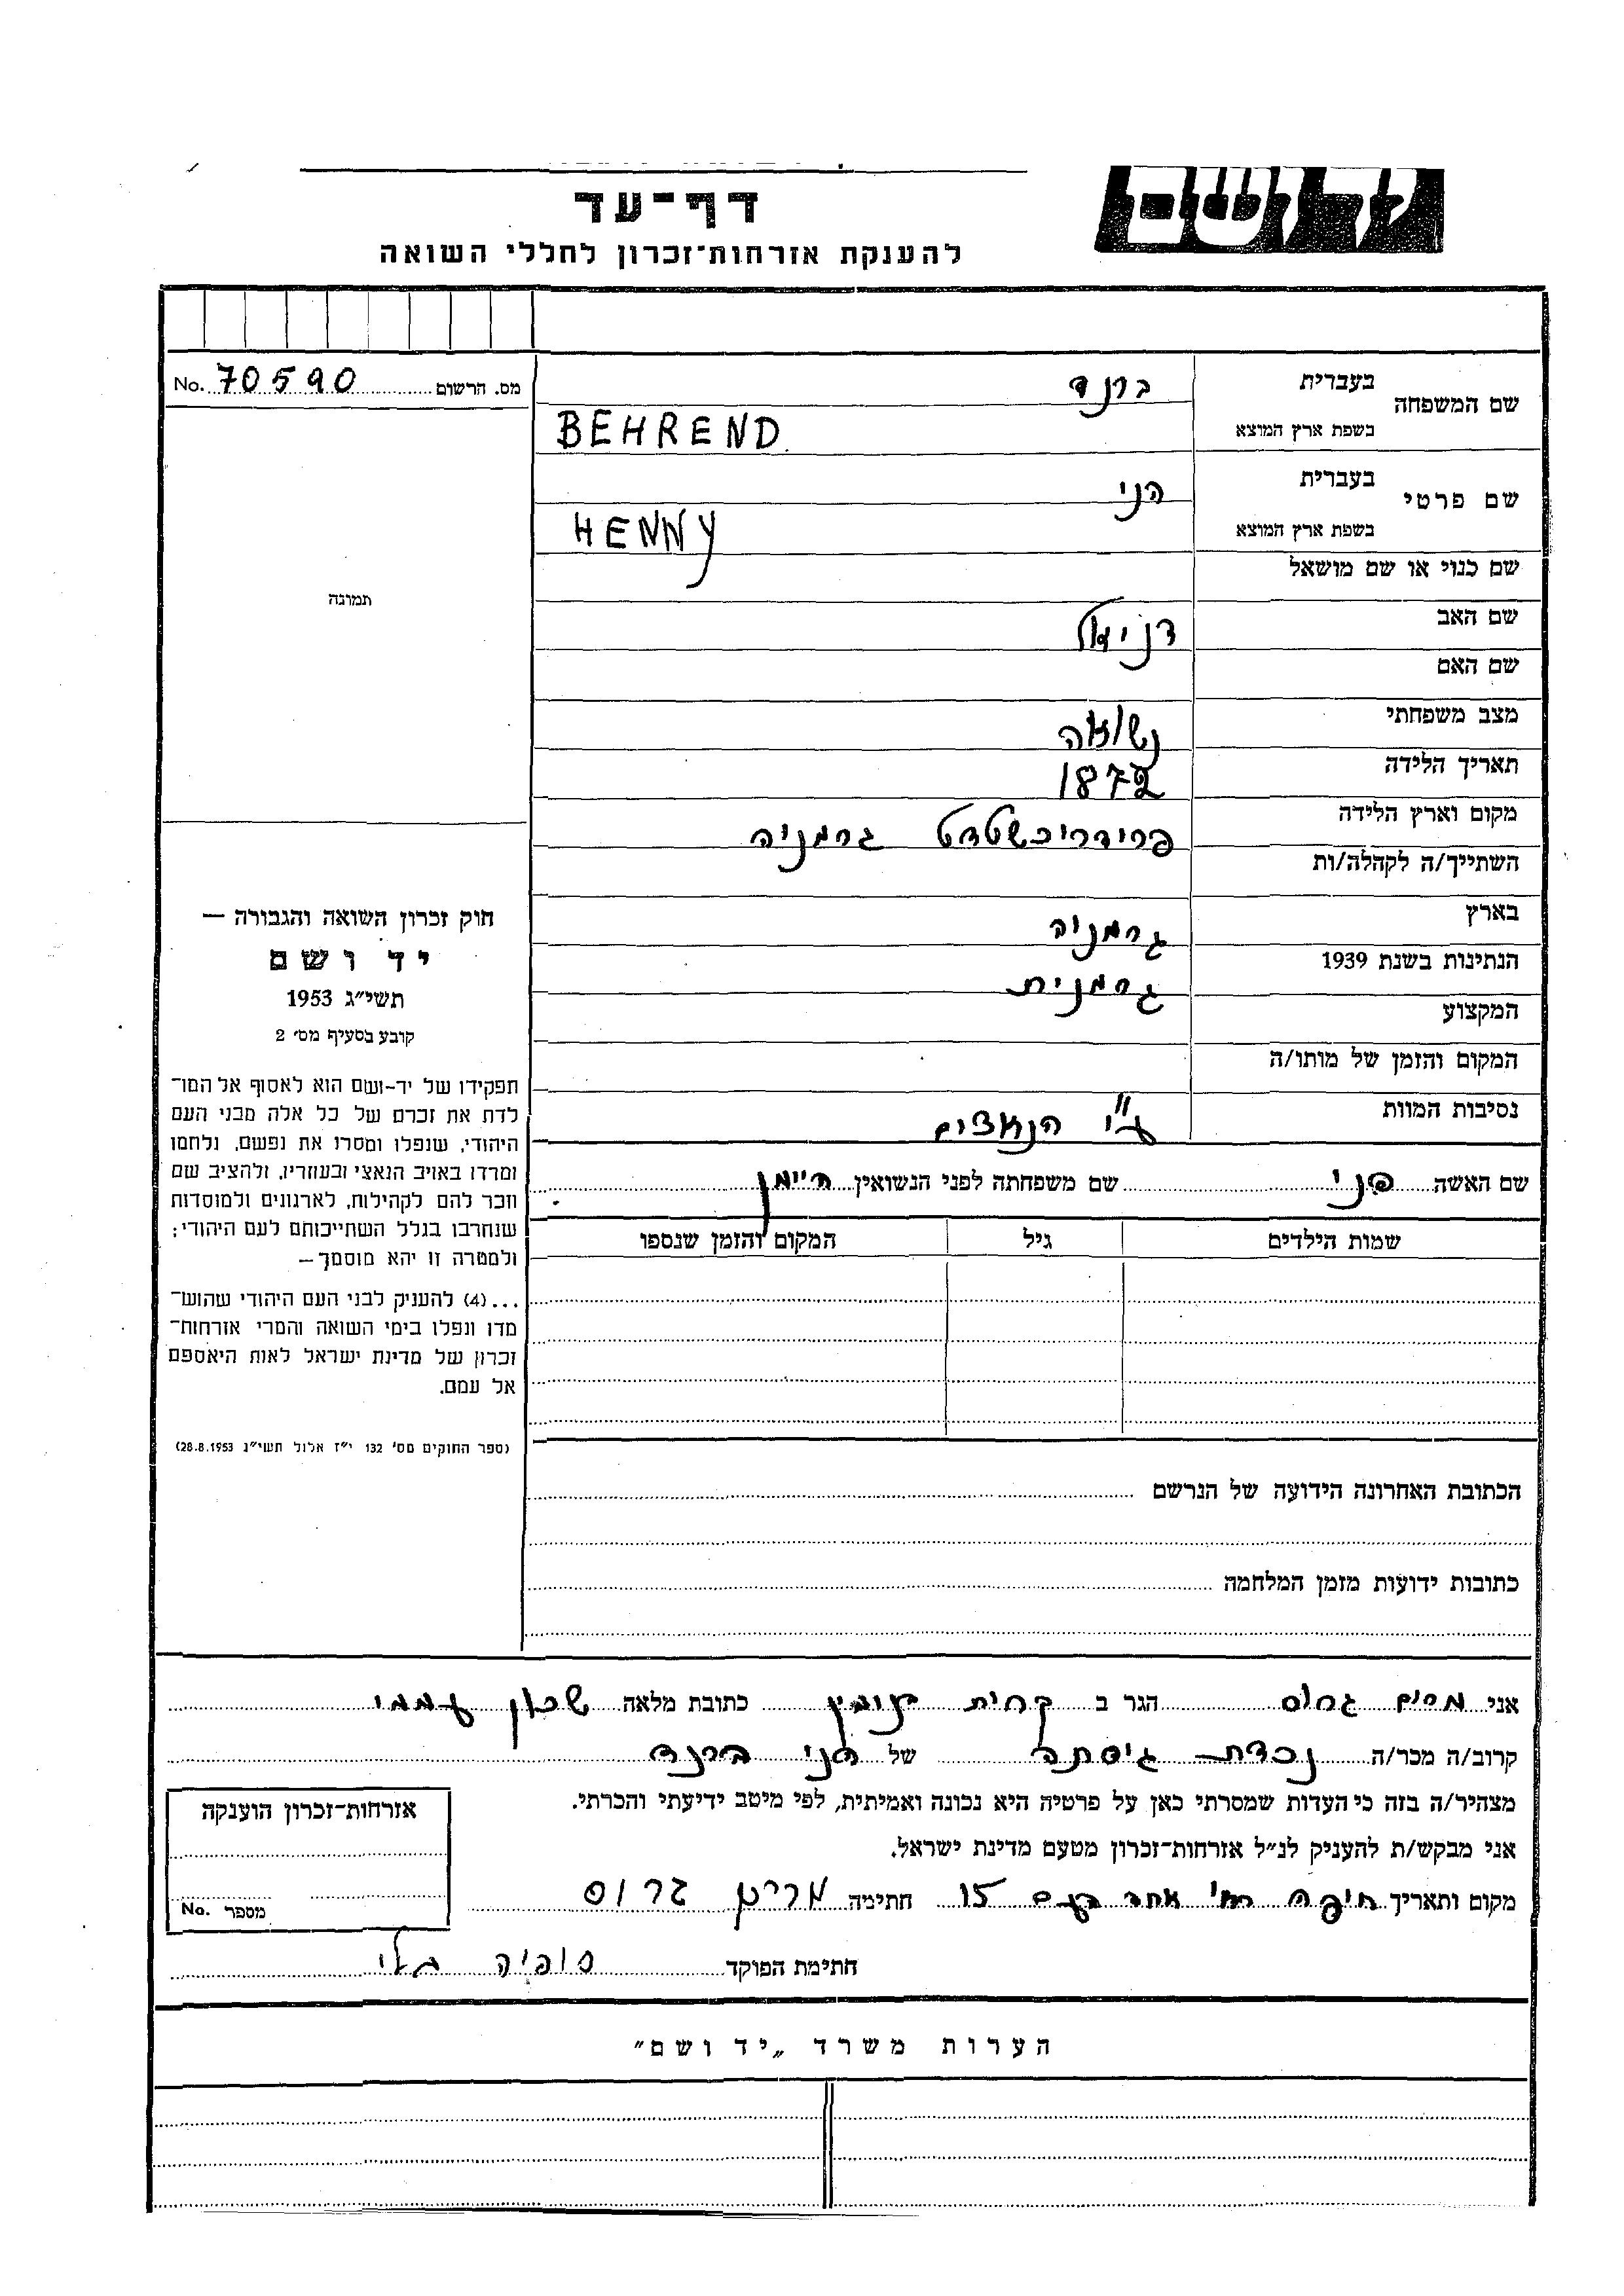 ד ושם
דף־עד
להענקת אזרחות־זכרון לחללי השואה
מס. הרשום 70590 No.
שם המשפחה בעברית ברנד
בשפת ארץ המוצא BEHREND
שם פרטי בעברית הני
בשפת ארץ המוצא HENNY
שם כנוי או שם מושאל
שם האב דניאל
שם האם
מצב משפחתי נשואה
תאריך הלידה 1872
מקום וארץ הלידה פרידריכשטדט גרמניה
השתייך/ה לקהלה/ות
בארץ גרמניה
הנתינות בשנת 1939 גרמנית
המקצוע
המקום והזמן של מותו/ה
נסיבות המוות ע"י הנאצים
שם האשה פני שם משפחתה לפני הנשואין היימן
שמות הילדים גיל המקום והזמן שנספו
הכתובת האחרונה הידועה של הנרשם
כתובות ידועות מזמן המלחמה
תמונה
חוק זכרון השואה והגבורה —
יד ושם
תשי״ג 1953
קובע בסעיף מס׳ 2
תפקידו של יד־ושם הוא לאסוף אל המו־
לדת את זכרם של כל אלה מבני העם
היהודי, שנפלו ומסרו את נפשם, נלחמו
ומרדו באויב הנאצי ובעוזריו, ולהציב שם
וזכר להם לקהילות, לארגונים ולמוסדות
שנחרבו בגלל השתייכותם לעם היהודי;
ולמטרה זו יהא מוסמך —
...(4) להעניק לבני העם היהודי שהוש־
מדו ונפלו בימי השואה והמרי אזרחות־
זכרון של מדינת ישראל לאות היאספם
אל עמם.
(ספר החוקים מס׳ 132 י״ז אלול תשי״ג 28.8.1953)
אני מרים גרוס הגר ב קרית כתובת מלאה שכון עממי
קרוב/ה מכר/ה נכדת גיסתה של הני ברנד
מצהיר/ה בזה כי העדות שמסרתי כאן על פרטיה היא נכונה ואמיתית, לפי מיטב ידיעתי והכרתי.
אני מבקש/ת להעניק לנ״ל אזרחות־זכרון מטעם מדינת ישראל.
מקום ותאריך חיפה רח' אחד העם 15 חתימה מרים גרוס
חתימת הפוקד סופיה גלי
אזרחות־זכרון הוענקה
מספר No.
הערות משרד „יד ושם״